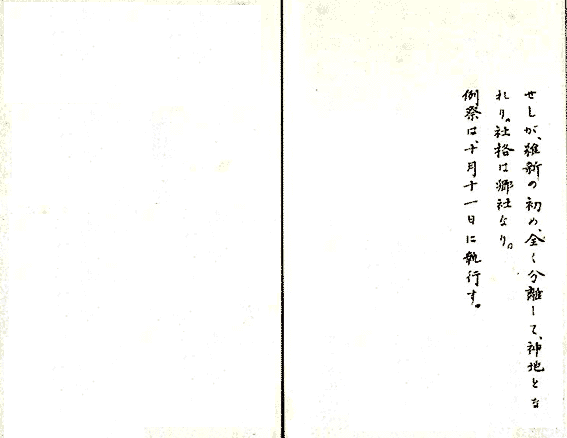 せしが、維新の初め、全く分離して、神地とな
れり。社格は郷社なり。
例祭は、十月十一日に執行す。